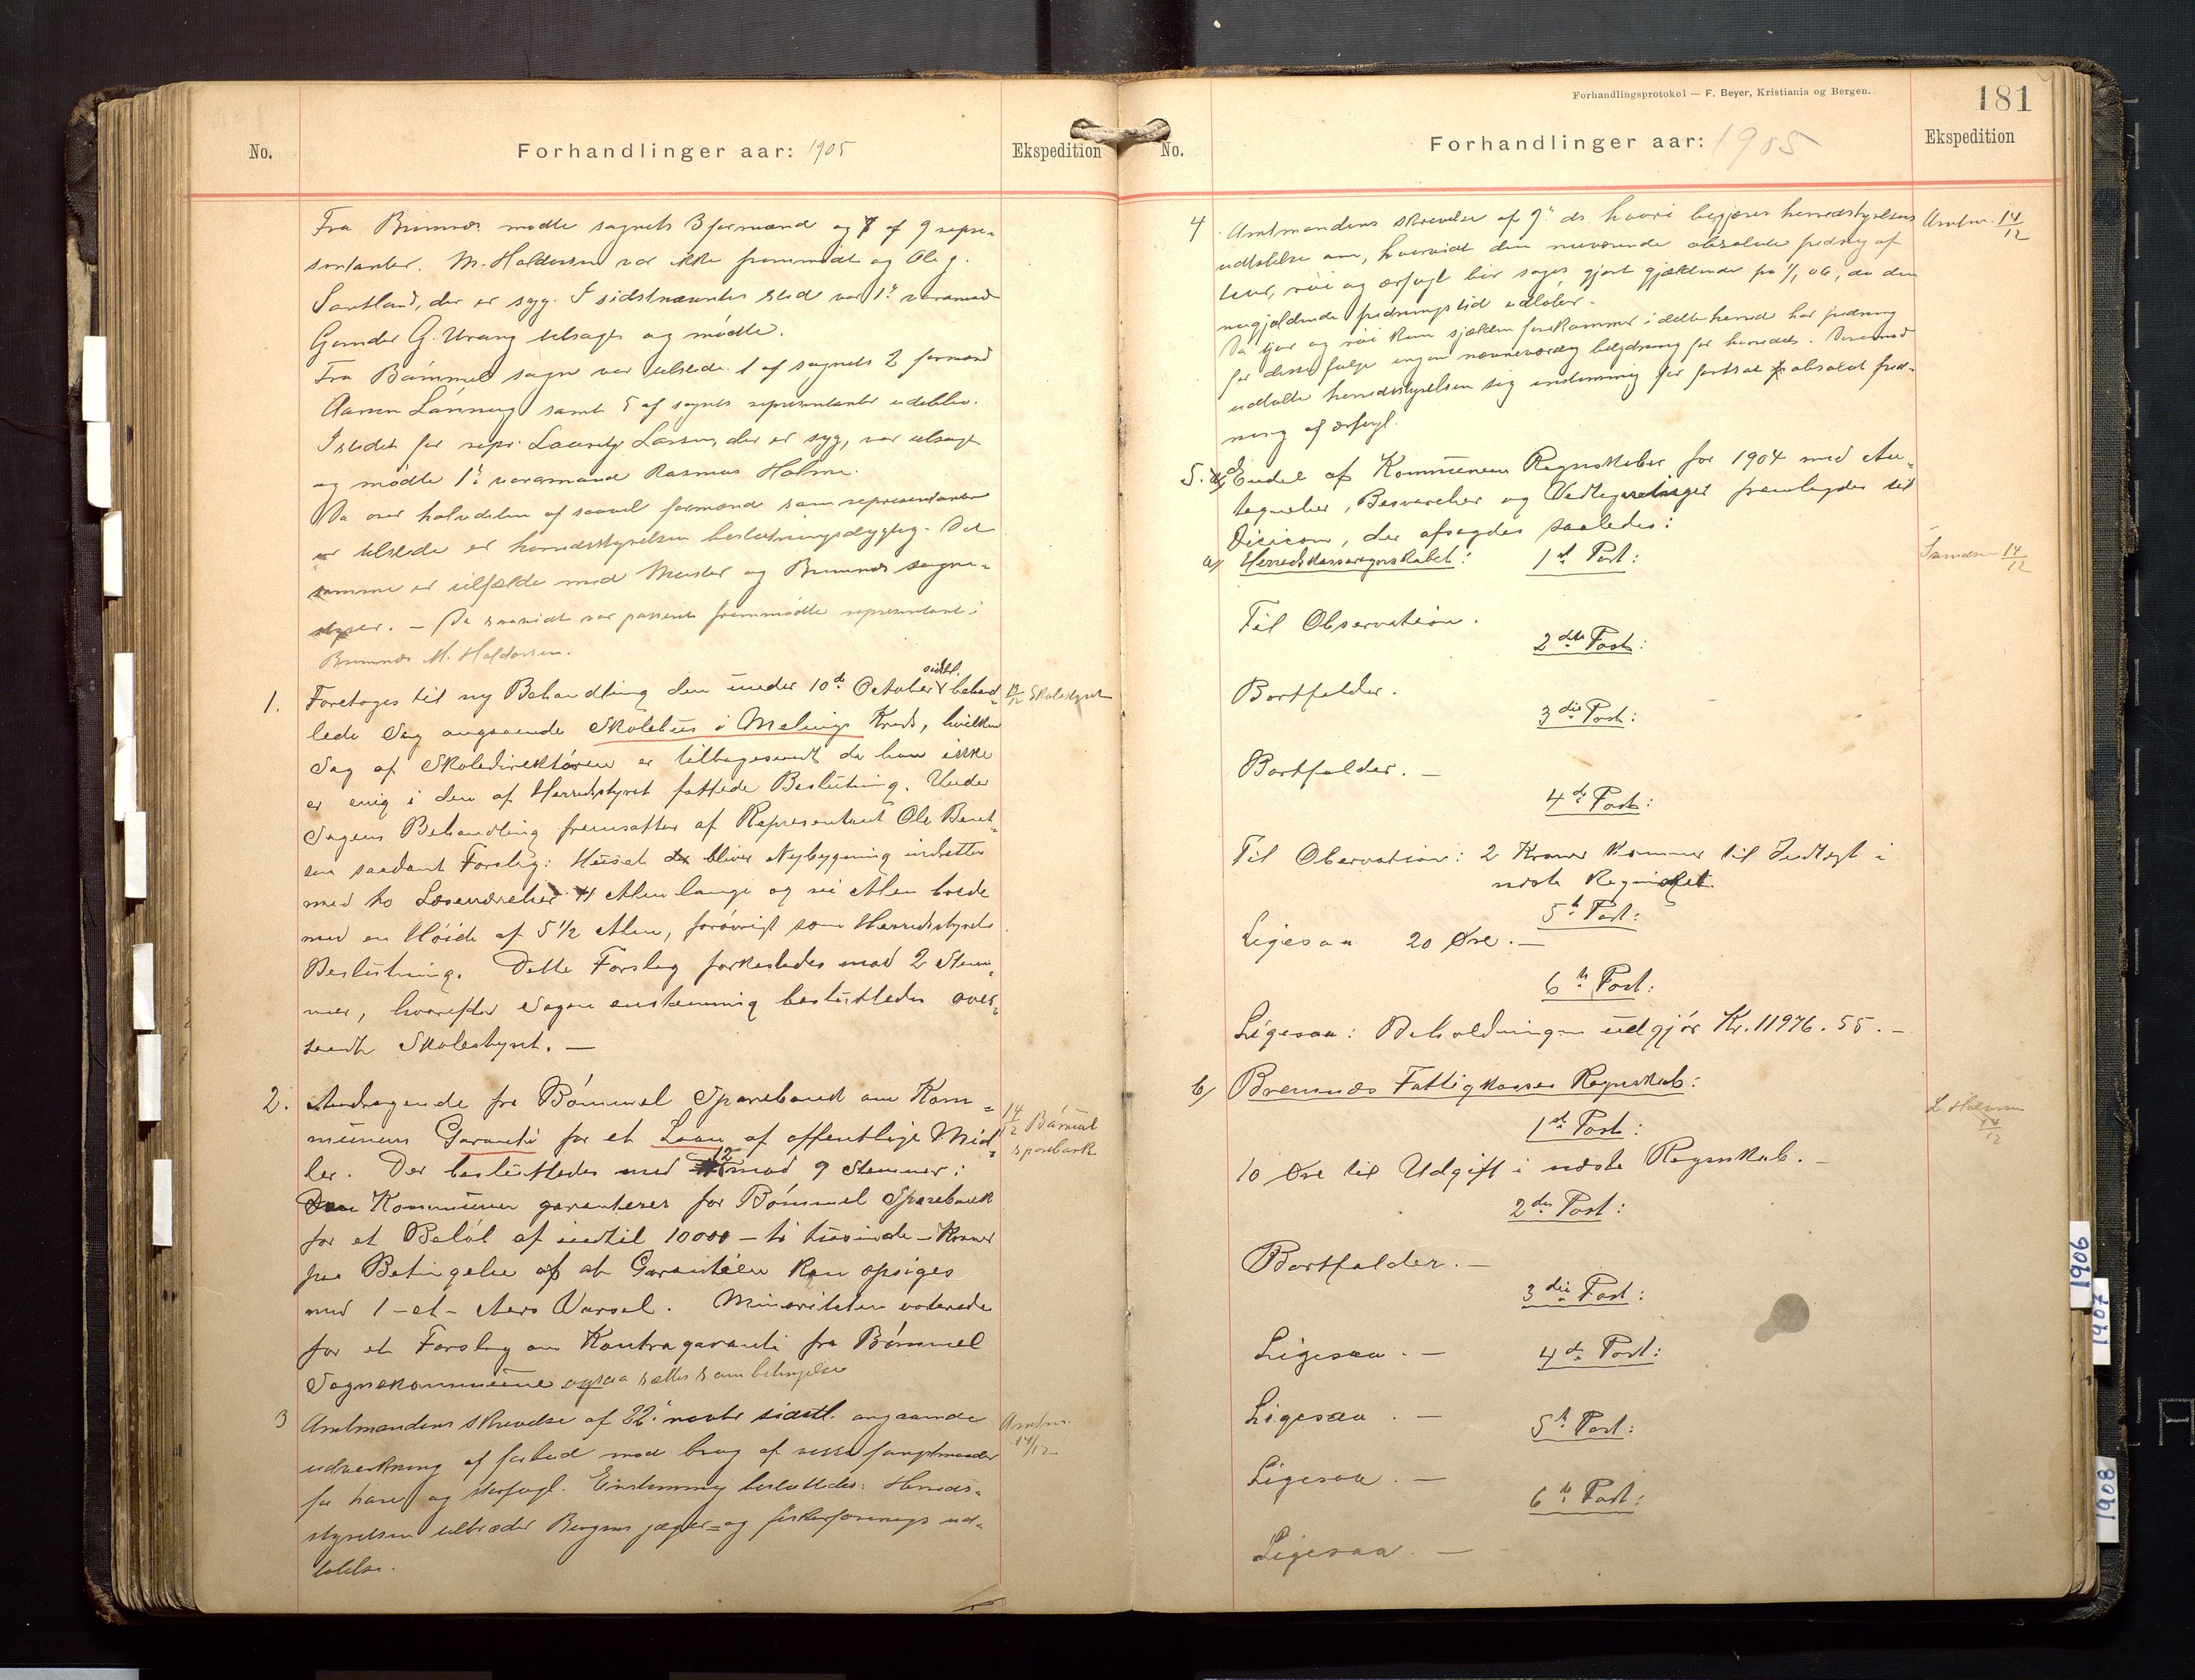 No.
Forhandlinger aar: 1905
Ekspedition
Fra Bremnes mødte sagnets 3 formænd og 7 af 9 repre-
sentanter. M. Haldorsen var ikke fremmødt og Ole J.
Sortland, der er syg. I sidstnævntes sted var 1ste varamand
Gunder G. Urang tilsagt og mødte.
Fra Bømmel sogn var tilstede 1 af sognets 2 formænd
samt 5 af sognets representanter udeblev.
Istedet for repr. Lauritz Larsen, der er syg, var tilsagt
og mødte 1ste varamand Rasmus Holme.
Da over halvdelen af saavel formænd som representanter
er tilstede er herredsstyrelsen beslutningsdygtig. Det
samme er tilfælde med Moster og Bremnes sogne-
styrer. — Da saavidt var passeret fremmødte representant i
Bremnes M. Haldorsen.
1. Foretoges til ny Behandling den under 10de October sidstl. behand-
lede Sag angaaende Skolehus i Melings Kreds, hvilken
Sag af Skoledirektøren er tilbagesendt da han ikke
er enig i den af Herredsstyret fattede Beslutning. Under
Sagens Behandling fremsattes af Representant Ole Bent-
sen saadant Forslag: Huset bliver Nybygning indrettes
med to Læseværelser 11 Alen lange og ni Alen brede
med en Høide af 5 1/2 Alen, forøvrigt som Herredsstyrets
Beslutning. Dette Forslag forkastedes mod 2 Stem-
mer, hvorefter Sagen enstemmig besluttedes over-
sendt Skolestyret. —
12/12 Skolestyret
2. Andragende fra Bømmel Sparebank om Kom-
munens Garanti for et Laan af offentlige Mid-
ler. Der besluttedes med 12 mod 9 Stemmer:
Kommunen garanterer for Bømmel Sparebank
for et Beløb af indtil 10000 – ti tusinde – Kroner
paa Betingelse af at Garantien kan opsiges
med 1 – et – Aars Varsel. Minoriteten voterede
for et Forslag om Kontragaranti fra Bømmel
Sognekommune ogsaa sættes som betingelse
14/12 Bømmel
sparebank
3 Amtmandens skrivelse af 22. novbr sidstl. angaaende
udvirkning af forbud mod brug af visse fangstmaader
for hare og storfugl. Enstemmig besluttedes: Herreds-
styrelsen tiltræder Bergens jæger- og fiskerforenings ud-
talelse.
Amtm.
14/12
Forhandlingsprotokol — F. Beyer, Kristiania og Bergen.
181
No.
Forhandlinger aar: 1905
Ekspedition
4 Amtmandens skrivelse af 9de ds. hvori begjæres herredsstyrelsens
udtalelse om, hvorvidt den nuværende absolute fredning af
tiur, røi og ærfugl bør søges gjort gjældende fra 1/1 06, da den
nugjældende fredningstid udløber.
Da tiur og røi kun sjelden forekommer i dette herred har fredning
for disse fugle ingen nævneværdig betydning for herredet. Derimod
udtalte herredsstyrelsen sig enstemmig for fortsat absolut fred-
ning af ærfugl.
Amtm. 14/12
5. Endel af Kommunens Regnskaber for 1904 med An-
tegnelser, Besvarelser og Vedtegninger fremlagdes til
Decision, der afsagdes saaledes:
a) Herredskasseregnskabet: 1ste Post:
14/12
Til Observation.
2den Post:
Bortfalder.
3die Post:
Bortfalder. —
4de Post:
Til Observation: 2 Kroner kommer til Indtægt i
næste Regnskab.
5te Post:
Ligesaa 20 Øre. —
6te Post:
Ligesaa: Beholdningen udgjør Kr. 11976.55. —
b) Bremnes Fattigkasses Regnskab:
1ste Post:
14/12
10 Øre til Udgift i næste Regnskab. —
2den Post:
Bortfalder. —
3die Post:
Ligesaa. —
4de Post:
Ligesaa. —
5te Post:
Ligesaa. —
6te Post:
Ligesaa. —
1906
1907
1908